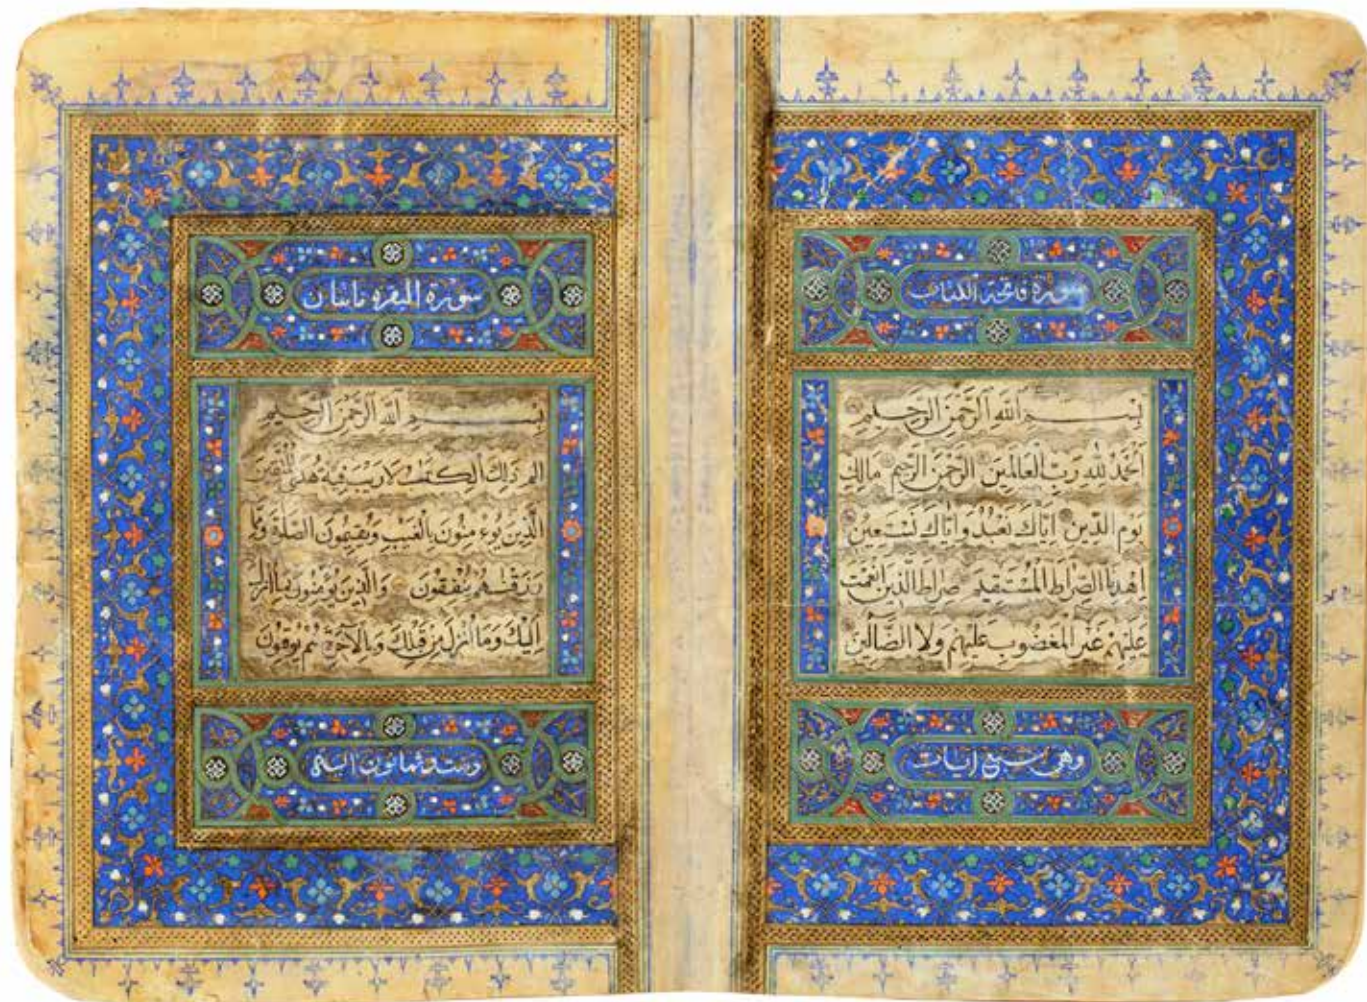 سورة فاتحة الكتاب
بسم الله الرحمن الرحيم
الحمد لله رب العالمين الرحمن الرحيم مالك
يوم الدين اياك نعبد واياك نستعين
اهدنا الصراط المستقيم صراط الذين انعمت
عليهم غير المغضوب عليهم ولا الضالين
وهي سبع ايات
سورة البقرة مايتان
بسم الله الرحمن الرحيم
الم ذلك الكتب لا ريب فيه هدى للمتقين
الذين يوءمنون بالغيب ويقيمون الصلوة ومما
رزقنهم ينفقون والذين يؤمنون بما انزل
اليك وما انزل من قبلك وبالآخرة هم يوقنون
وست وثمانون اية